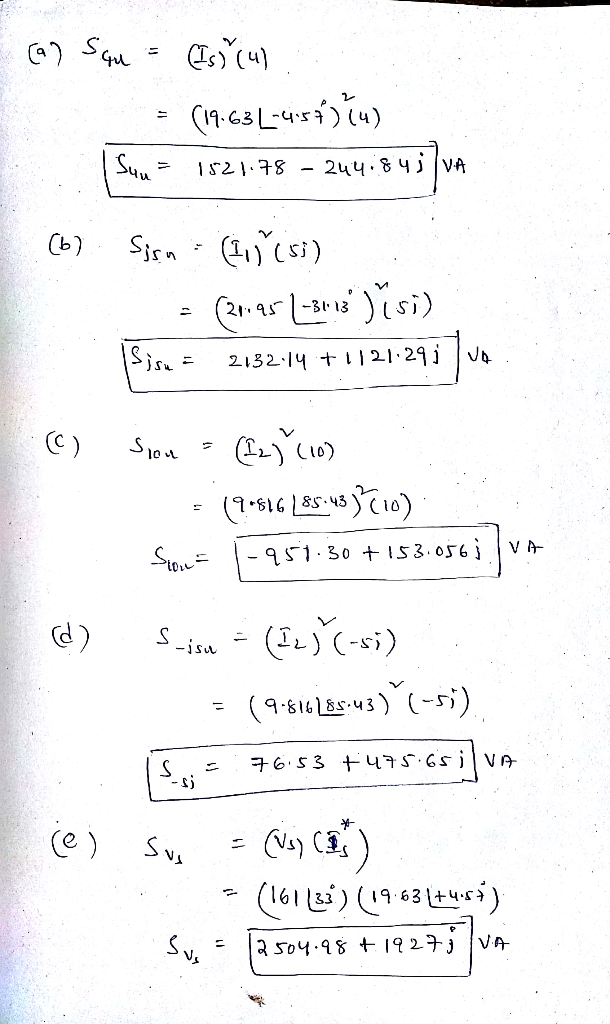 (a) S4Ω = (Is)²(4)
= (19.63∠-4.57°)²(4)
S4Ω = 1521.78 - 244.84j VA
(b) Sj5Ω = (I1)²(5j)
= (21.95∠-31.13°)²(5j)
Sj5Ω = 2132.14 + 1121.29j VA.
(c) S10Ω = (I2)²(10)
= (9.816∠85.43)²(10)
S10Ω = -951.30 + 153.056j VA
(d) S-j5Ω = (I2)²(-5j)
= (9.816∠85.43)²(-5j)
S-5j = 76.53 + 475.65j VA
(e) SVs = (Vs)(Is*)
= (161∠33°)(19.63∠+4.57°)
SVs = 2504.98 + 1927j VA